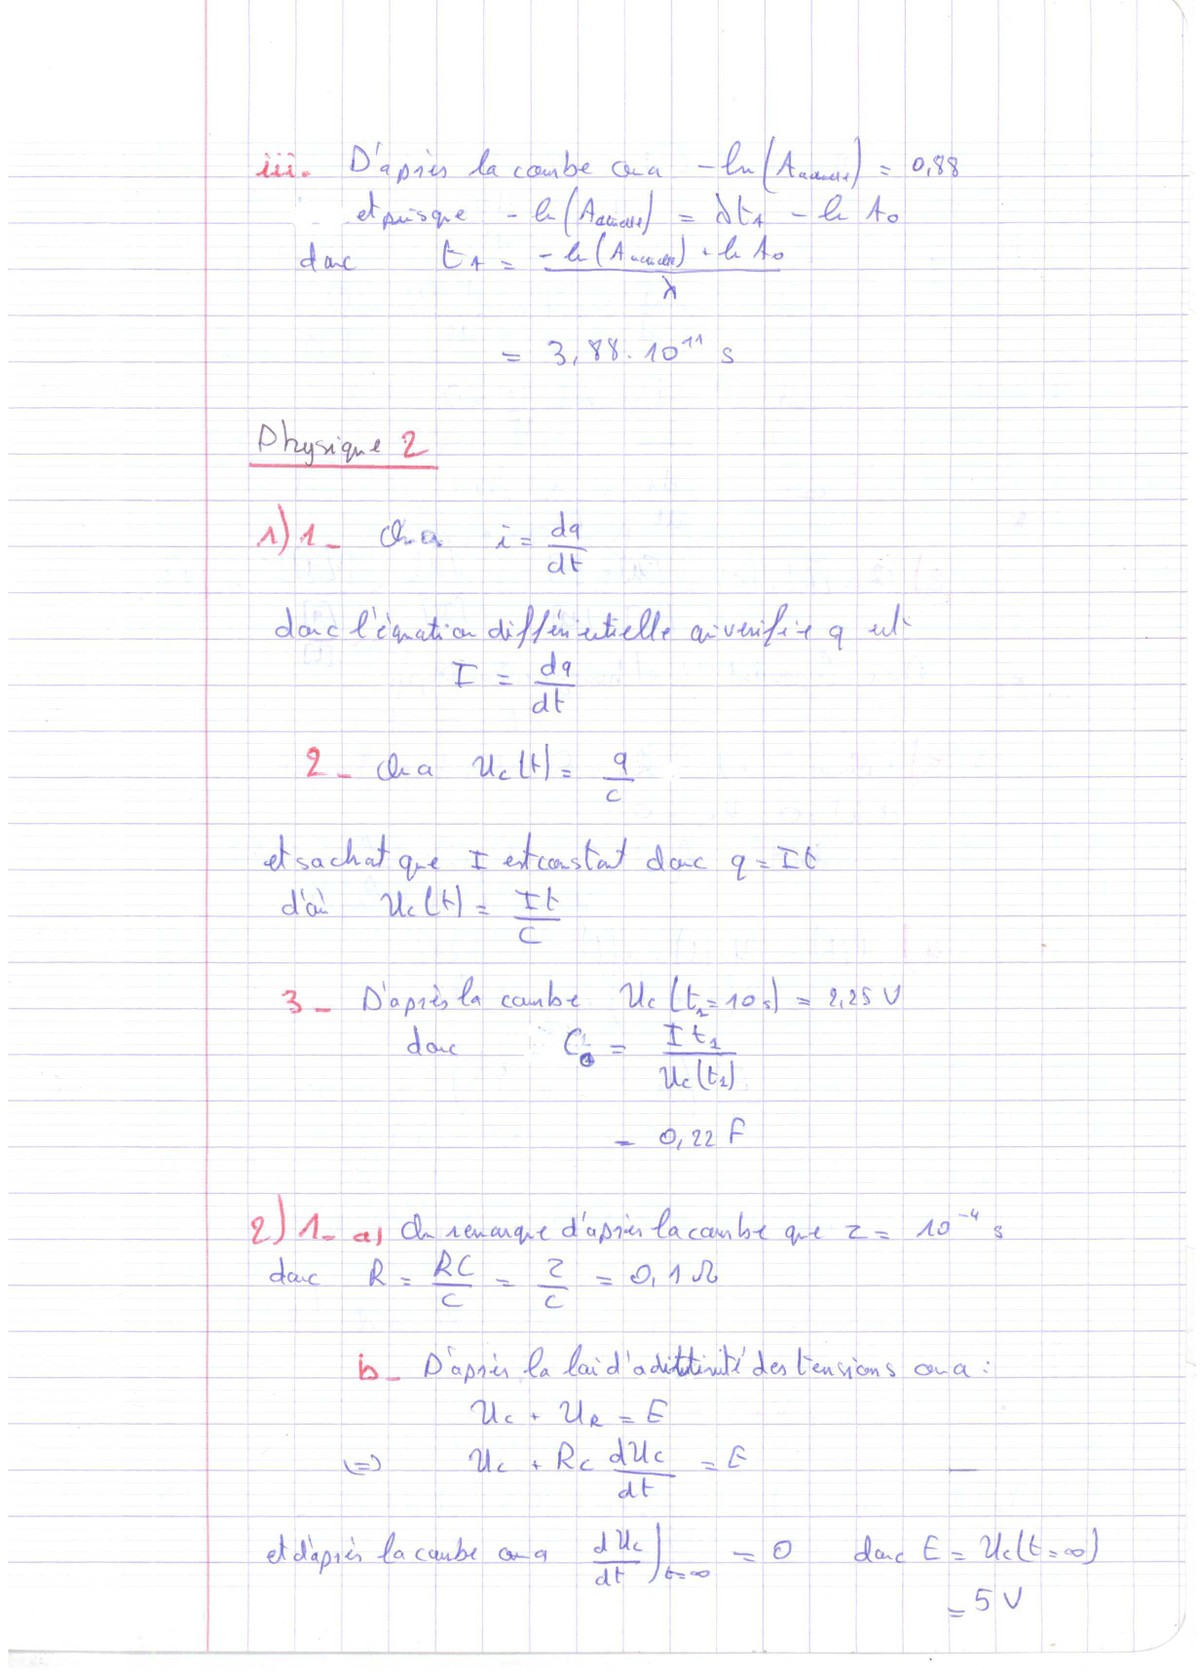 iii. D'après la courbe on a -ln(Aactuelle) = 0,88
et puisque - ln(Aactuelle) = λt1 - ln A0
donc t1 = -ln(Aactuelle) + ln A0
λ
= 3,88.10^11 s
Physique 2
1) 1- On a i = dq/dt
donc l'équation différentielle qui vérifie q est
I = dq/dt
2- On a Uc(t) = q/C
et sachat que I est constant donc q = It
d'où Uc(t) = It/C
3- D'après la courbe Uc(t1=10s) = 2,25 V
donc C0 = I t1/Uc(t1)
= 0,22 F
2) 1- a) On remarque d'après la courbe que τ = 10^-4 s
donc R = RC/C = τ/C = 0,1 Ω
b- D'après la loi d'additivité des tensions on a :
Uc + UR = E
<=> Uc + RC dUc/dt = E
et d'après la courbe on a dUc/dt)t=∞ = 0 donc E = Uc(t=∞)
= 5 V